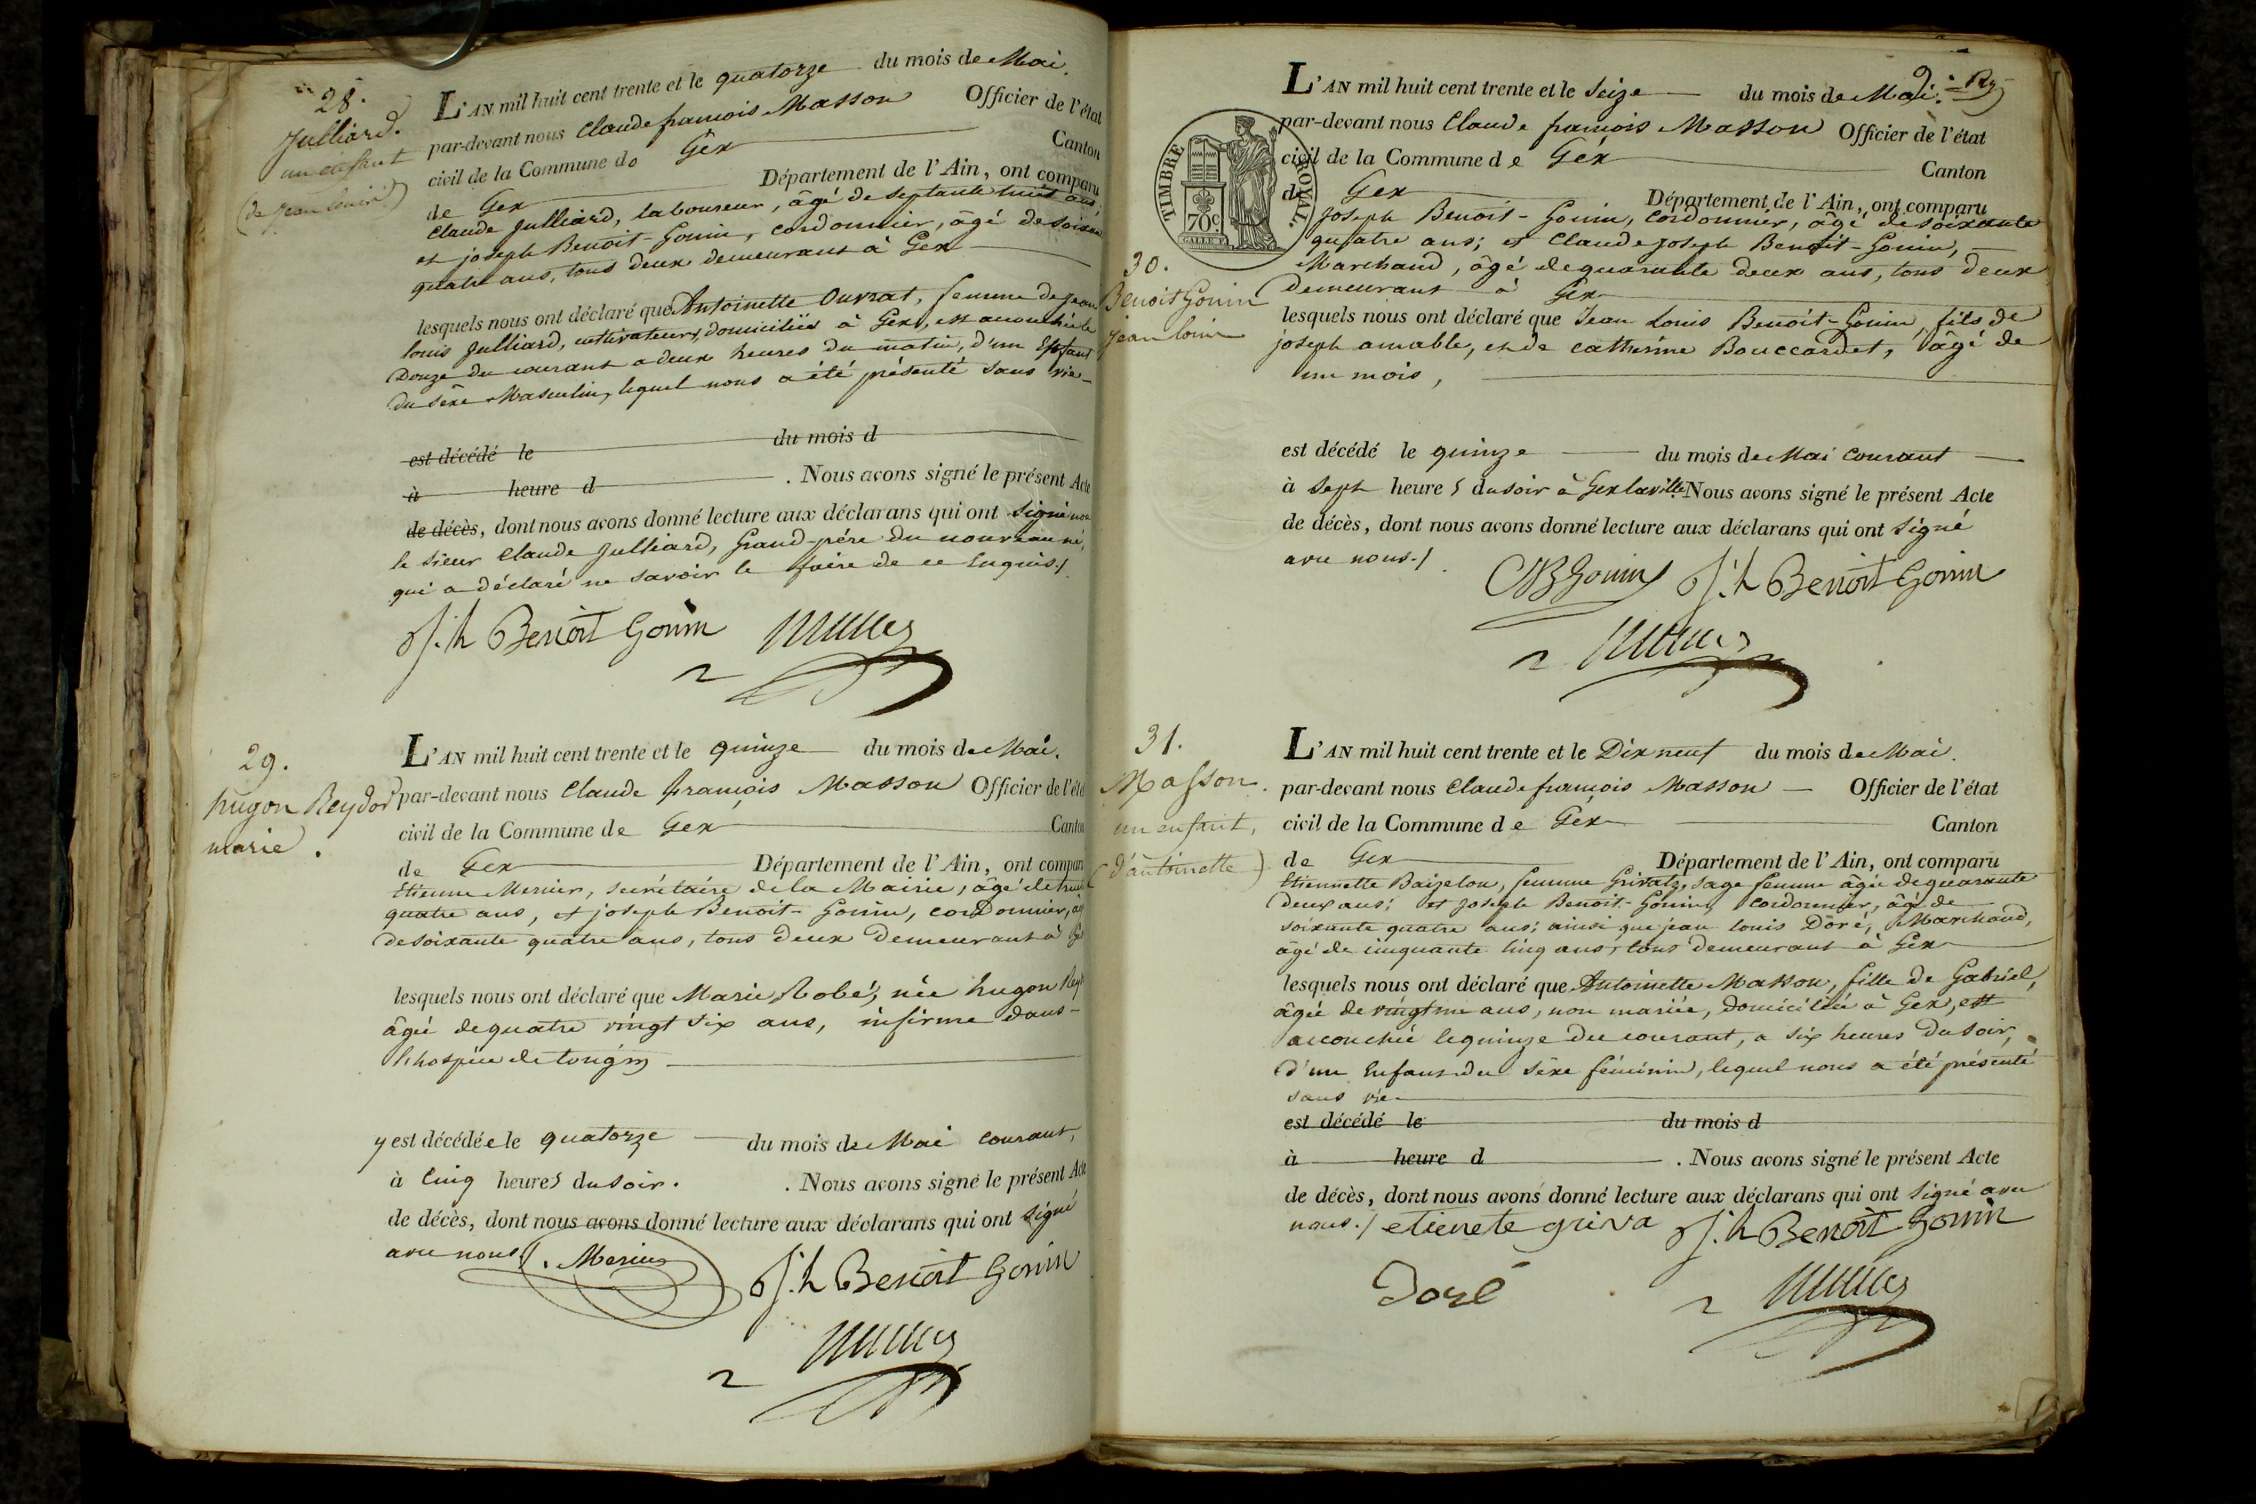 28.
Julliard.
un enfant
(de jean louis)
L'AN mil huit cent trente et le quatorze du mois de Mai.
par-devant nous Claude françois Masson Officier de l'état
civil de la Commune de Gex Canton
de Gex Département de l'Ain, ont comparu
Claude Julliard, laboureur, âgé de septante huit ans,
et joseph Benoit-Gonin, cordonnier, âgé de soixante
quatre ans, tous deux demeurant à Gex
lesquels nous ont déclaré que Antoinette Ouvrat, femme de jean
louis Julliard, cultivateurs, domiciliés à Gex, est accouchée le
Douze du courant a deux heures du matin, d'un Enfant
Du sexe Masculin, lequel nous a été présenté sans vie
est décédé le du mois d
à heure d . Nous avons signé le présent Acte
de décès, dont nous avons donné lecture aux déclarans qui ont signé non
le sieur Claude Julliard, Grand-père du nouveau né,
qui a déclaré ne savoir le faire de ce Enquis./.
J.h Benoit Gonin
29.
hugon Reydor
marie.
L'AN mil huit cent trente et le quinze du mois de Mai.
par-devant nous Claude françois Masson Officier de l'état
civil de la Commune de Gex Canton
de Gex Département de l'Ain, ont comparu
Etienne Mernier, secrétaire de la Mairie, âgé de trente
quatre ans, et joseph Benoit-Gonin, cordonnier, âgé
de soixante quatre ans, tous deux demeurant à Gex
lesquels nous ont déclaré que Marie Robé, née hugon Rey
âgée de quatre vingt six ans, infirme dans
l'hospice de tougin
y est décédée le quatorze du mois de Mai courant,
à Cinq heures du soir. . Nous avons signé le présent Acte
de décès, dont nous avons donné lecture aux déclarans qui ont signé
avec nous./. Mernier
J.h Benoit Gonin
30.
Benoit Gonin
jean louis
TIMBRE ROYAL.
70c
L'AN mil huit cent trente et le Seize du mois de Mai.
par-devant nous Claude françois Masson Officier de l'état
civil de la Commune de Gex Canton
de Gex Département de l'Ain, ont comparu
Joseph Benoit-Gonin, cordonnier, âgé de soixante
quatre ans; et Claude Joseph Benoit-Gonin,
Marchand, âgé de quarante deux ans, tous deux
Demeurant à Gex
lesquels nous ont déclaré que Jean Louis Benoit-Gonin, fils de
joseph amable, et de catherine Bouccardet, âgé de
un mois,
est décédé le quinze du mois de Mai courant
à sept heures du soir à Gex la ville. Nous avons signé le présent Acte
de décès, dont nous avons donné lecture aux déclarans qui ont signé
avec nous./.
CJBGonin J.h Benoit Gonin
31.
Masson.
un enfant,
(d'antoinette)
L'AN mil huit cent trente et le Dix neuf du mois de Mai.
par-devant nous Claude françois Masson Officier de l'état
civil de la Commune de Gex Canton
de Gex Département de l'Ain, ont comparu
Etiennette Baizelon, femme Grivatz, sage femme âgée de quarante
Deux ans; et Joseph Benoit-Gonin, Cordonnier, âgé de
soixante quatre ans; ainsi que jean louis Doré, Marchand,
âgé de cinquante Cinq ans, tous demeurant à Gex
lesquels nous ont déclaré que Antoinette Masson, fille de Gabriel,
âgée de vingt un ans, non mariée, Domiciliée à Gex, est
accouchée le quinze du courant, a six heures du soir,
d'un Enfant du sexe féminin, lequel nous a été présenté
sans vie
est décédé le du mois d
à heure d . Nous avons signé le présent Acte
de décès, dont nous avons donné lecture aux déclarans qui ont signé avec
nous./ etienete griva J.h Benoit Gonin
Doré